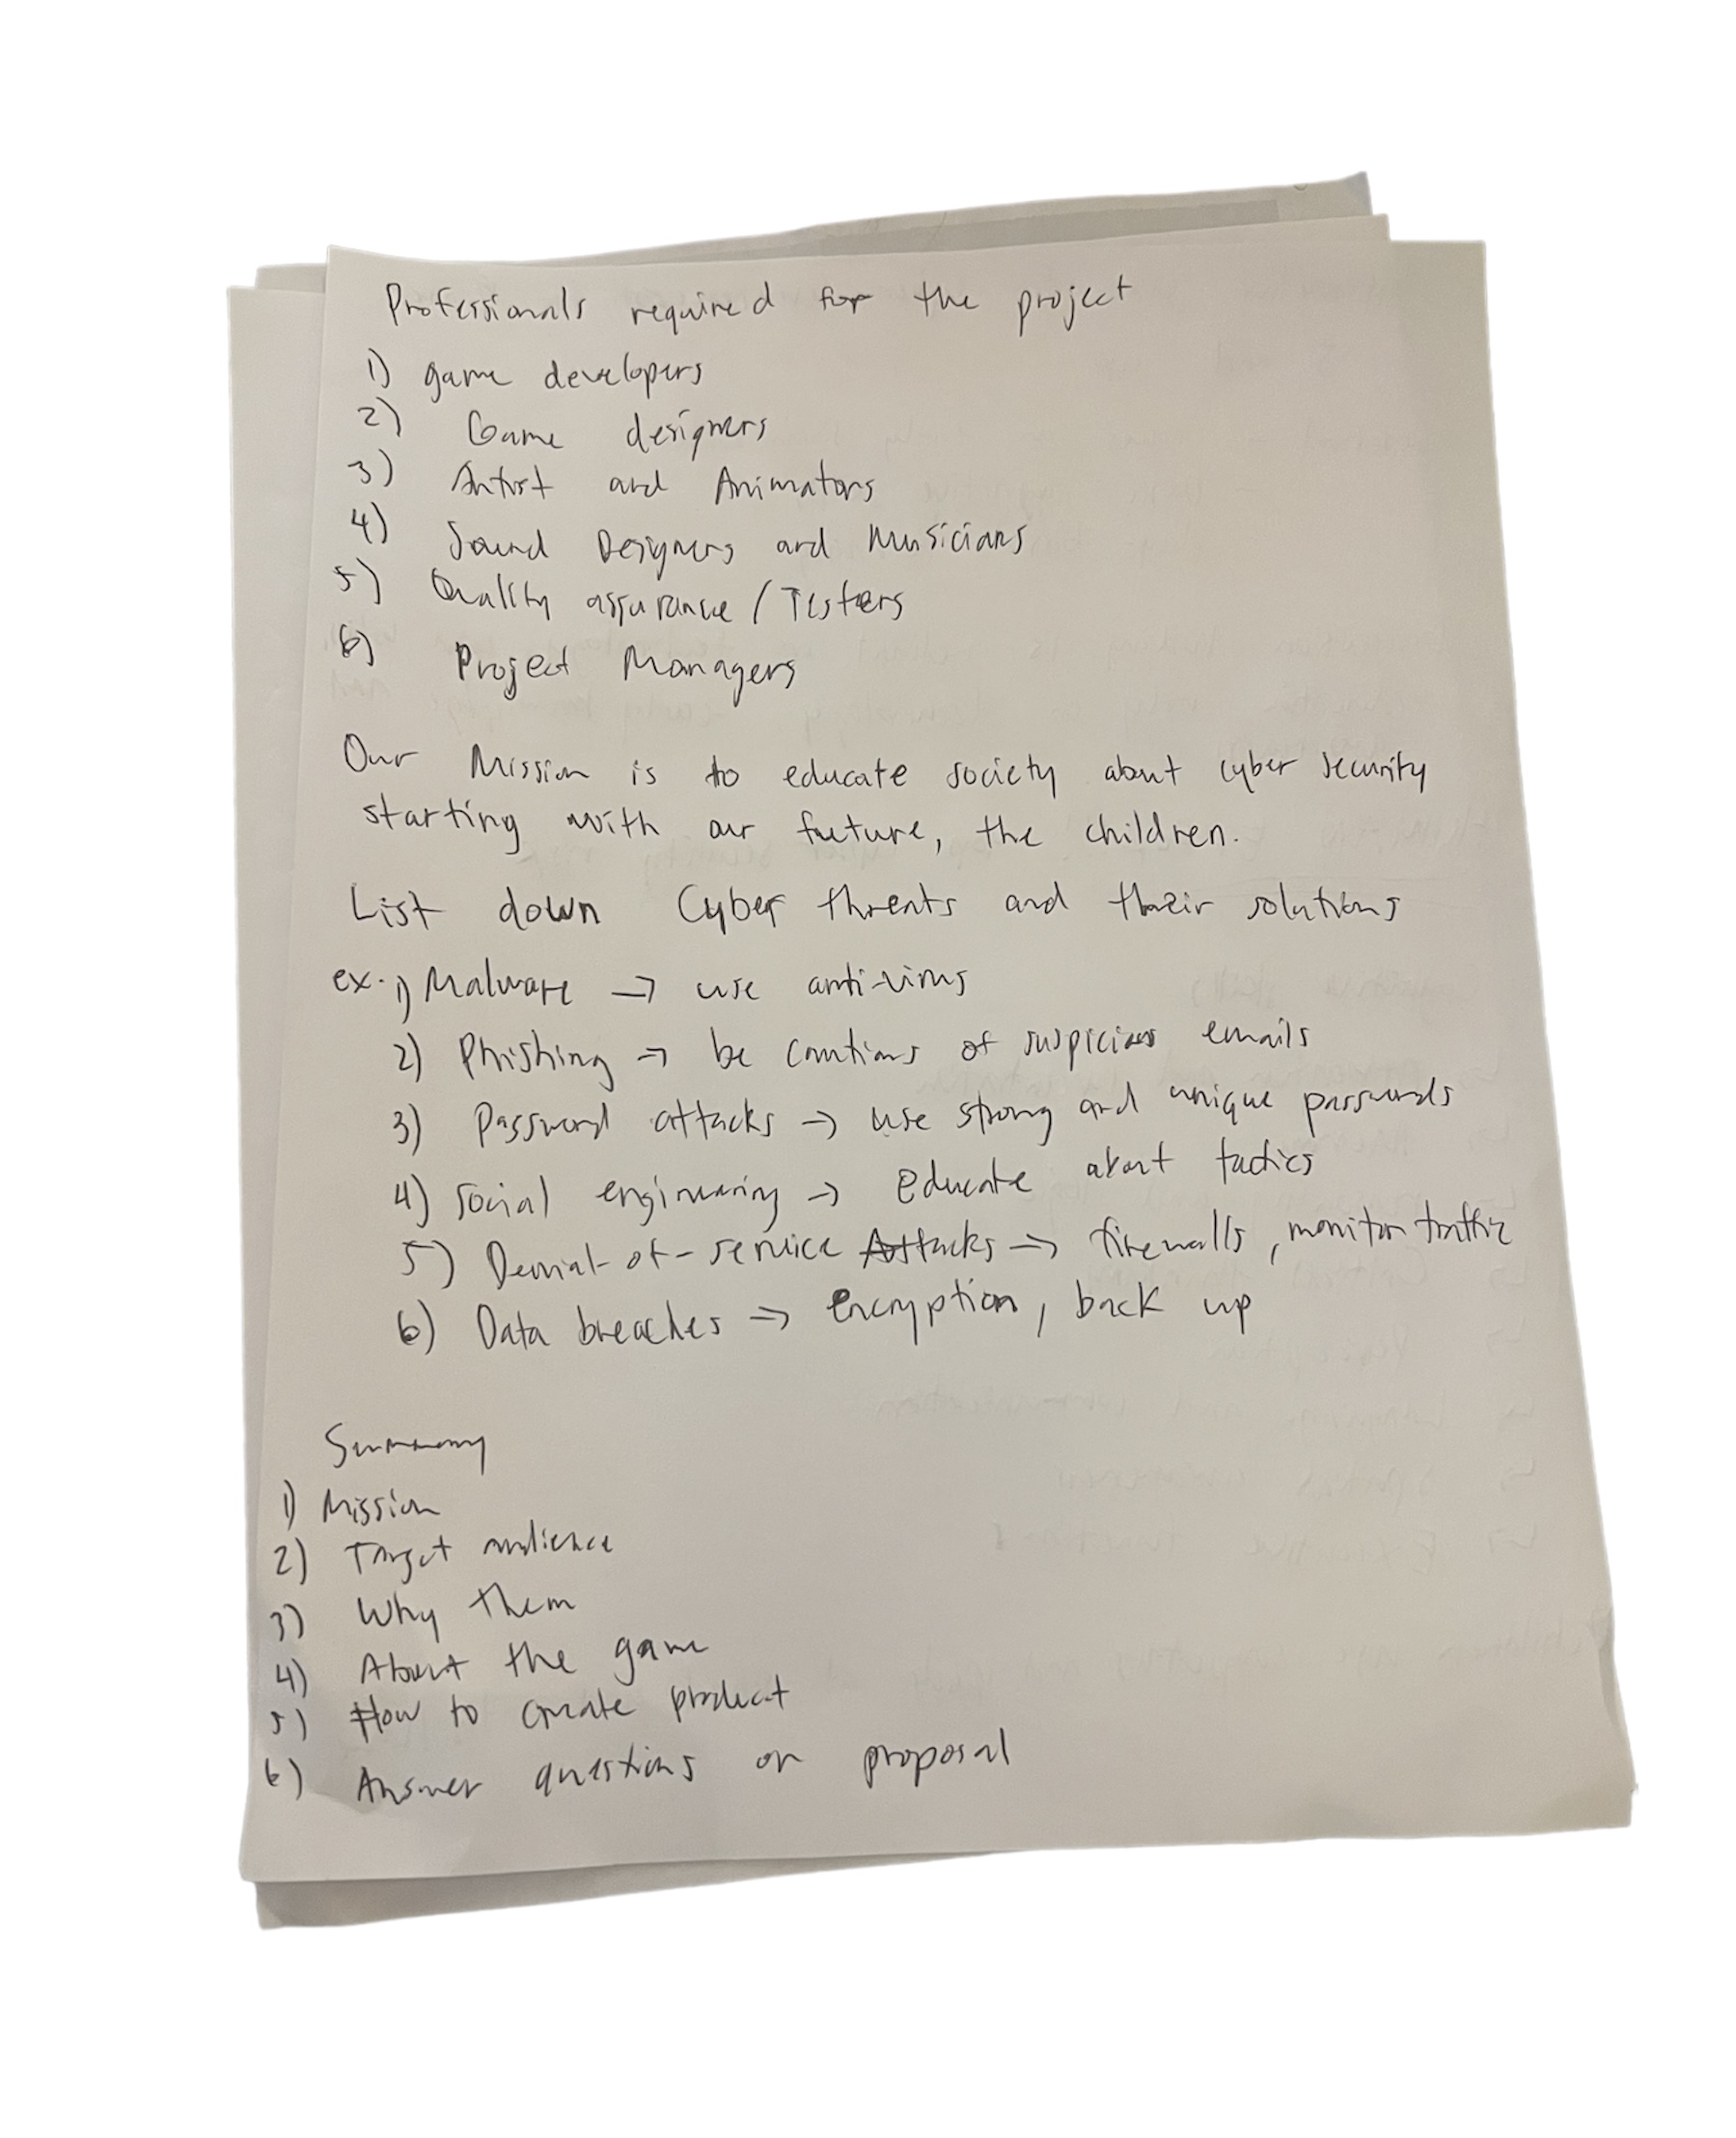 Professionals required for the project
1) game developers
2) Game designers
3) Artist and Animators
4) Sound Designers and Musicians
5) Quality assurance / Testers
6) Project Managers
Our Mission is to educate society about cyber security
starting with our future, the children.
List down Cyber threats and their solutions
ex. 1) Malware → use anti-virus
2) Phishing → be cautious of suspicious emails
3) Password attacks → use strong and unique passwords
4) Social engineering → educate about tactics
5) Denial-of-service Attacks → firewalls, monitor traffic
6) Data breaches → encryption, back up
Summary
1) Mission
2) Target audience
3) Why them
4) About the game
5) How to create product
6) Answer questions on proposal